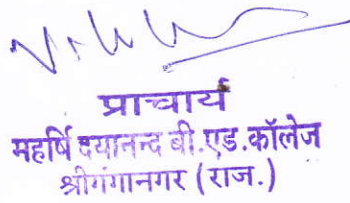 प्राचार्य
महर्षि दयानन्द बी.एड.कॉलेज
श्रीगंगानगर (राज.)